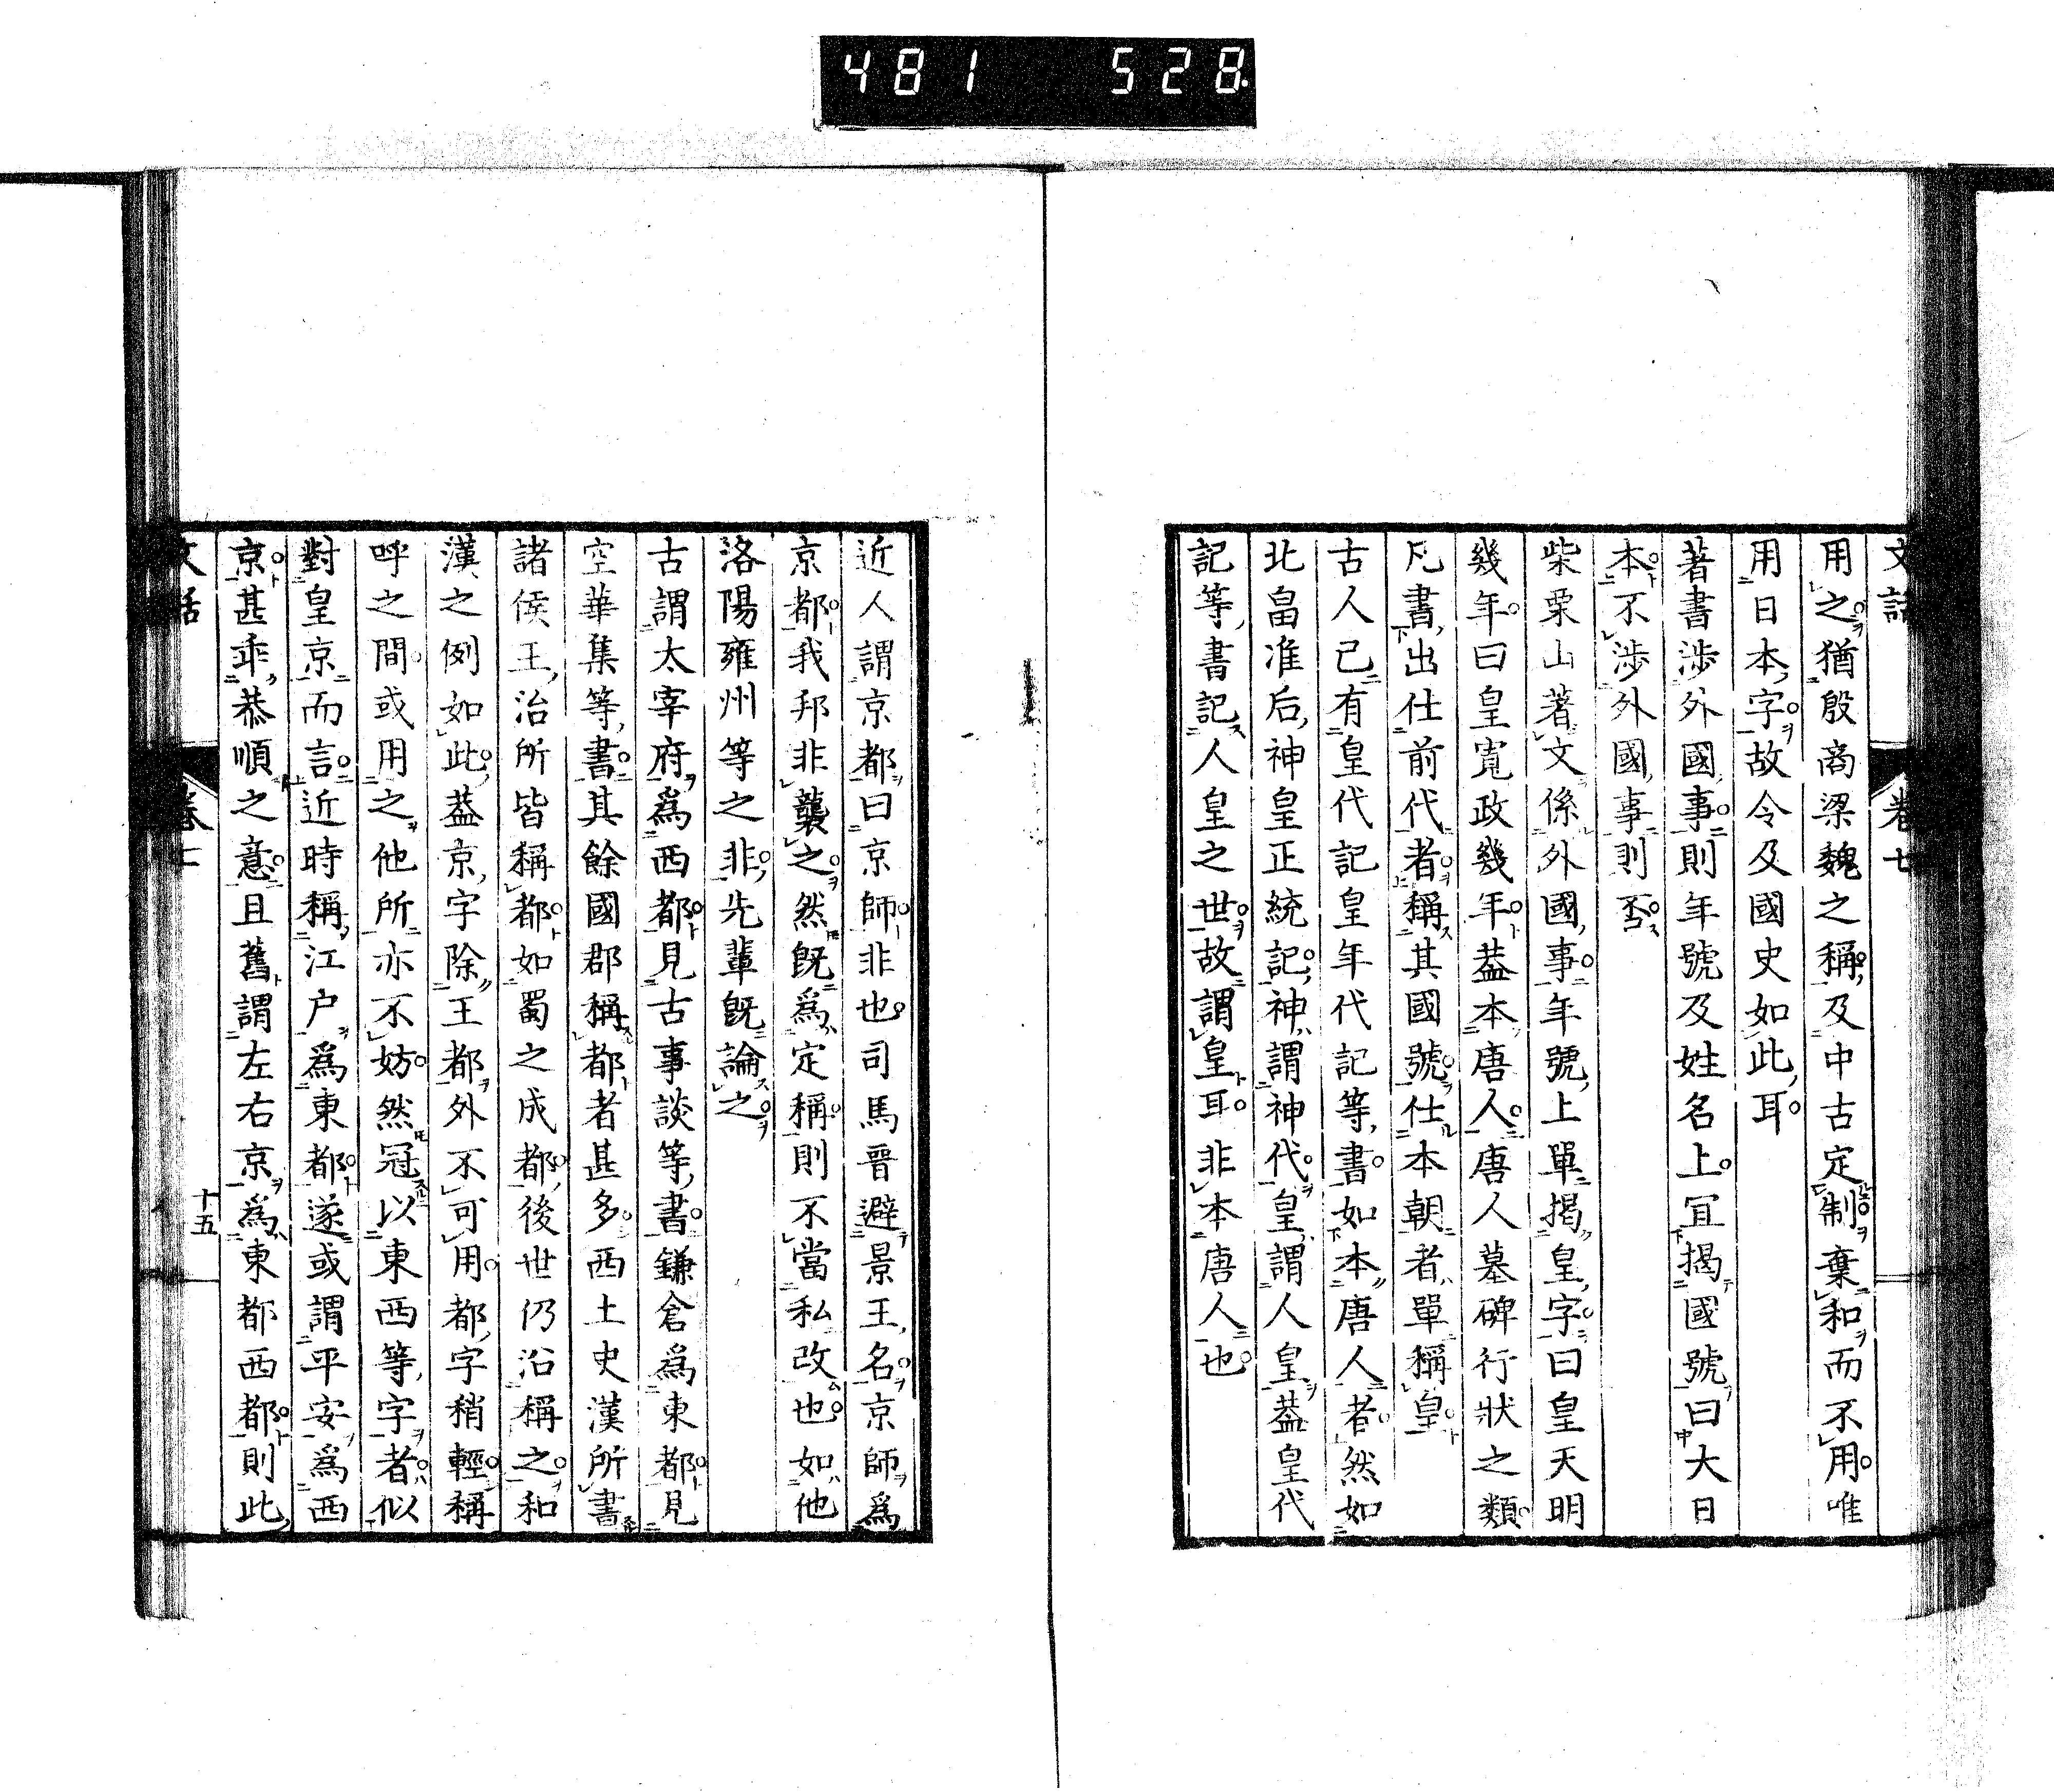 481 528.
文話 卷七
用之猶殷商梁魏之稱及中古定制棄和而不用唯
用日本字故令及國史如此耳
著書涉外國事則年號及姓名上冝揭國號曰大日
本不涉外國事則否
柴栗山著文係外國事年號上單揭皇字曰皇天明
幾年曰皇寬政幾年葢本唐人唐人墓碑行狀之類
凡書出仕前代者稱其國號仕本朝者單稱皇
古人已有皇代記皇年代記等書如本唐人者然如
北畠准后神皇正統記神謂神代皇謂人皇葢皇代
記等書記人皇之世故謂皇耳非本唐人也
近人謂京都曰京師非也司馬晋避景王名京師爲
京都我邦非襲之然旣爲定稱則不當私改也如他
洛陽雍州等之非先輩旣論之
古謂太宰府爲西都見古事談等書鎌倉爲東都見
空華集等書其餘國郡稱都者甚多西土史漢所書
諸侯王治所皆稱都如蜀之成都後世仍沿稱之和
漢之例如此葢京字除王都外不可用都字稍輕稱
呼之間或用之他所亦不妨然冠以東西等字者似
對皇京而言近時稱江户爲東都遂或謂平安爲西
京甚乖恭順之意且舊謂左右京爲東都西都則此
文話 卷七 十五